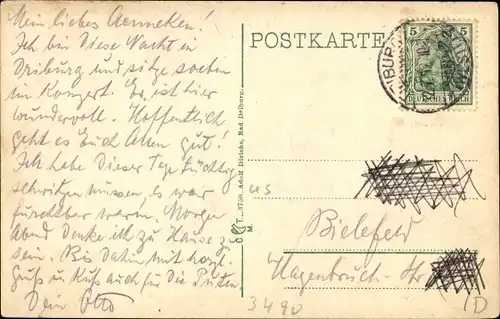 Mein liebes Aenneken!
Ich bin diese Nacht in
Driburg und sitze soeben
im Konzert. Es ist hier
wundervoll. Hoffentlich
geht es Euch Allen gut!
Ich habe dieser Tage tüchtig
schwitzen müssen, es war
furchtbar warm. Morgen
Abend denke ich zu Hause zu
sein. Bis dahin mit herzl.
Gruß u Kuß auch für die
Dein Otto
POSTKARTE
5 5
DEUTSCHES REICH
T., 3756 Adolf Dirichs, Bad Driburg.
M.
us
Bielefeld
Hagenbruch-Str
3490
D